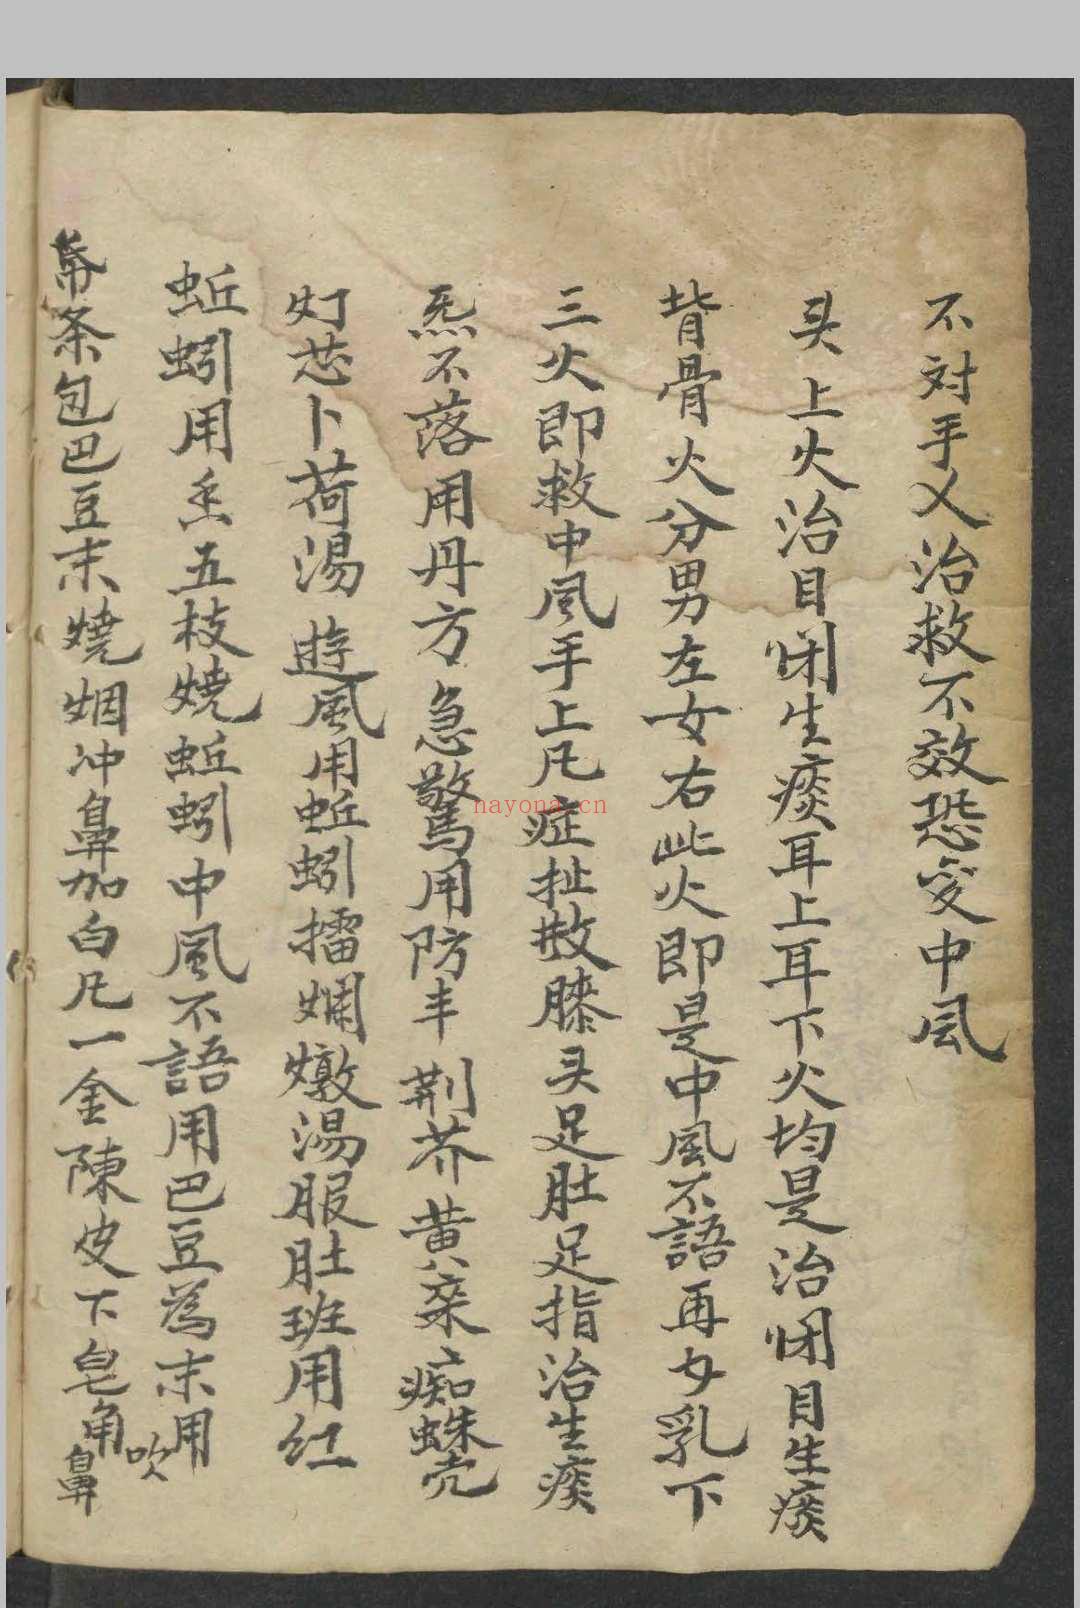 不对手乂治救不效恐变中風
头上火治目闭生痰耳上耳下火均是治闭目生痰
背骨火分男左女右此火即是中風不語再女乳下
三火即救中風手上凡症扯散膝头足肚足指治生痰
炁不落用丹方急驚用防丰荆芥黄柰痴蛛壳
灯芯卜荷湯遊風用蚯蚓擂爛燉湯服肚班用红
蚯蚓用五枝燒蚯蚓中風不語用巴豆為末用
条包巴豆末燒烟冲鼻加白凡一金陳皮下皂角吹鼻
nayona.cn